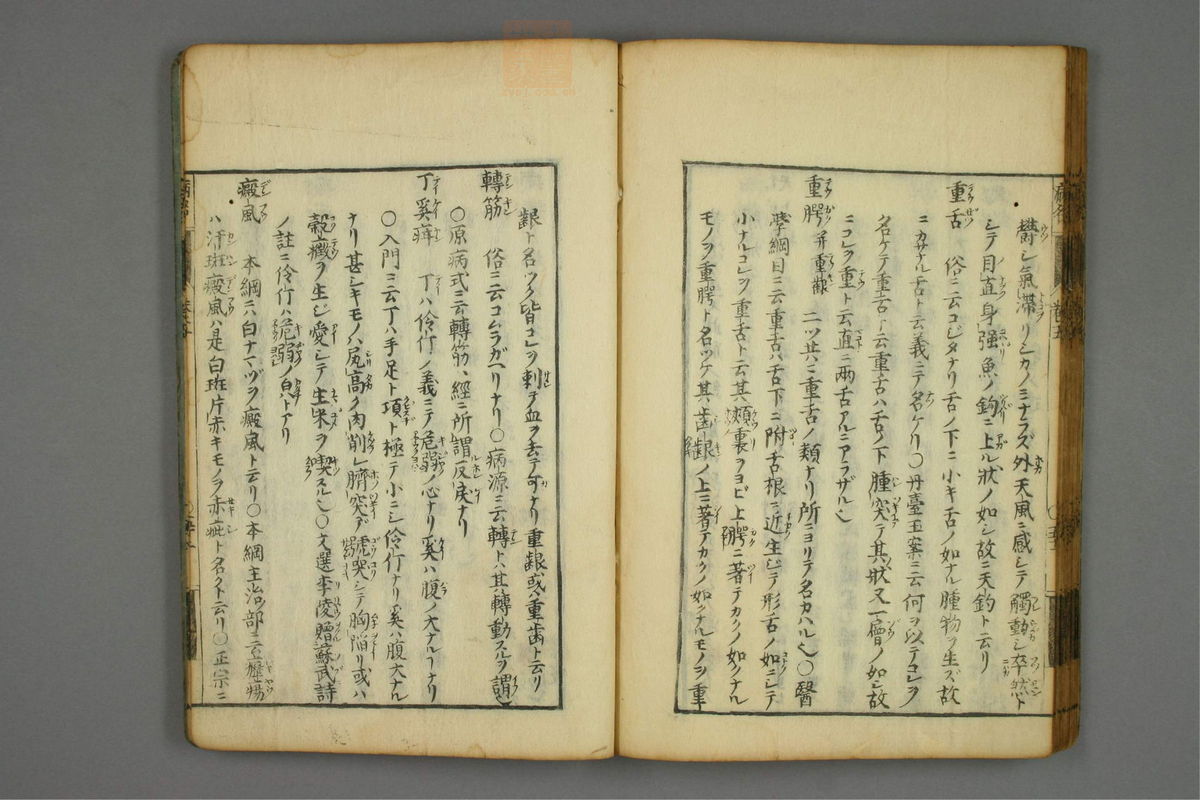 鬱シ氣滯リシカノミナラズ外天風ニ感シテ觸動シ卒然ト
シテ目直身強魚ノ鉤ニ上ル狀ノ如シ故ニ天鉤ト云リ
重舌 俗ニ云コジタナリ舌ノ下ニ小キ舌ノ如ナル腫物ヲ生ズ故
ニカサナル舌ト云義ニテ名ケリ〇丹臺玉案ニ云何ヲ以テコレヲ
名ケテ重舌ト云重舌ハ舌ノ下腫突テ其狀又一層ノ如シ故
ニコレヲ重ト云直ニ兩舌アルニアラザル也
重腭 并重齦 二ツ共ニ重舌ノ類ナリ所ニヨリテ名カハル也〇醫
學綱目ニ云重舌ハ舌下ニ附舌根ニ近生ジテ形舌ノ如ニシテ
小ナルコレヲ重舌ト云其頰裏ヲヨビ上腭ニ著テカクノ如クナル
モノヲ重腭ト名ツケ其齒齦ノ上ニ著テカクノ如クナルモノヲ重
齦ト名ツク皆コレヲ刺テ血ヲ去テ可ナリ重齦或ハ重齒ト云リ
轉筋 俗ニ云コムラガヘリナリ〇病源ニ云轉トハ其轉動スルヲ謂
〇原病式ニ云轉筋ハ經ニ所謂反戾ナリ
丁奚疳 丁ハ伶仃ノ義ニテ危弱ノ心ナリ奚ハ腹ノ大ナルーナリ
〇入門ニ云丁ハ手足ト項ト極テ小ニシ伶仃ナリ奚ハ腹大ナル
ナリ甚シキモノハ尻高ク肉削レ臍突デ號哭シテ胸陷リ或ハ
穀癥ヲ生ジ愛シテ生米ヲ喫スル也〇文選李陵贈蘇武詩
ノ註ニ伶仃ハ危弱ノ皃トアリ
癜風 本綱ニハ白ナマヅヲ癜風ト云リ〇本綱主治部ニ立癧瘍
ハ汗斑癜風ハ是白斑片赤キモノヲ赤疵ト名クト云リ〇正宗ニ